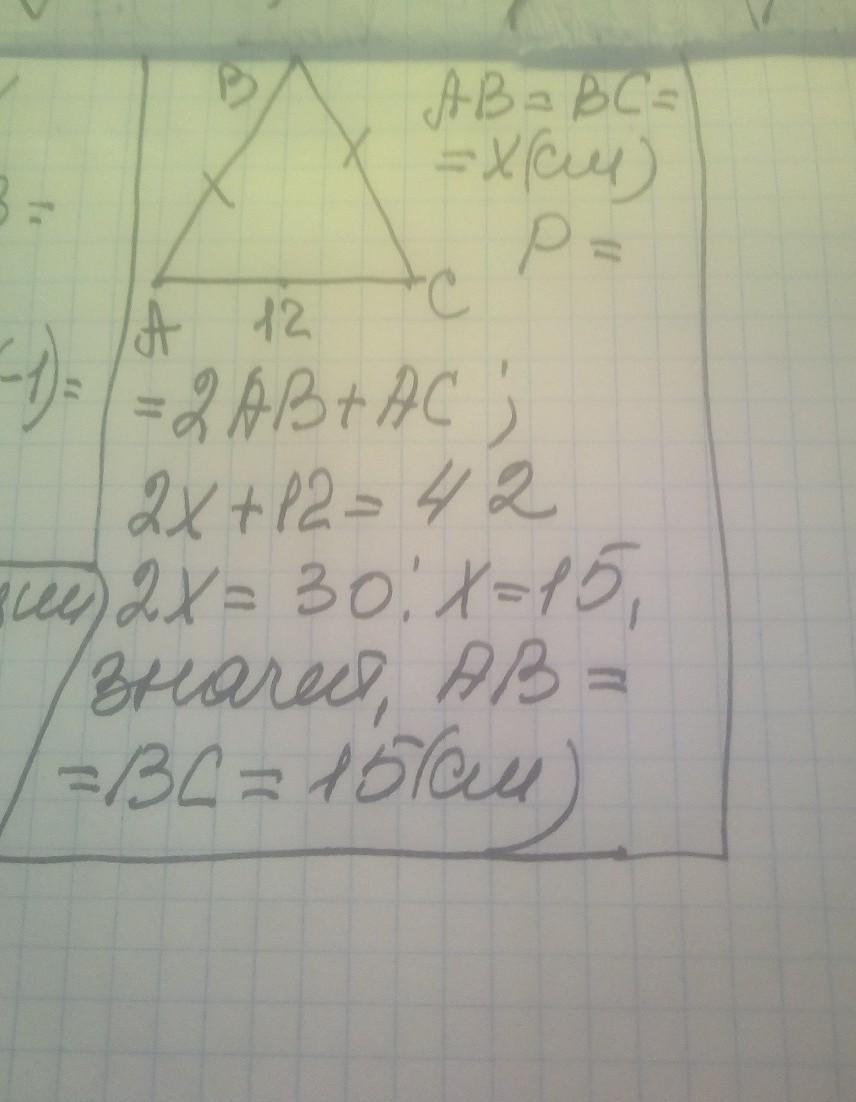 B
AB = BC =
= x(см)
P =
A 12 C
= 2AB + AC ;
2x + 12 = 42
2x = 30; x = 15,
значит, AB =
= BC = 15(см)
3 =
-1) =